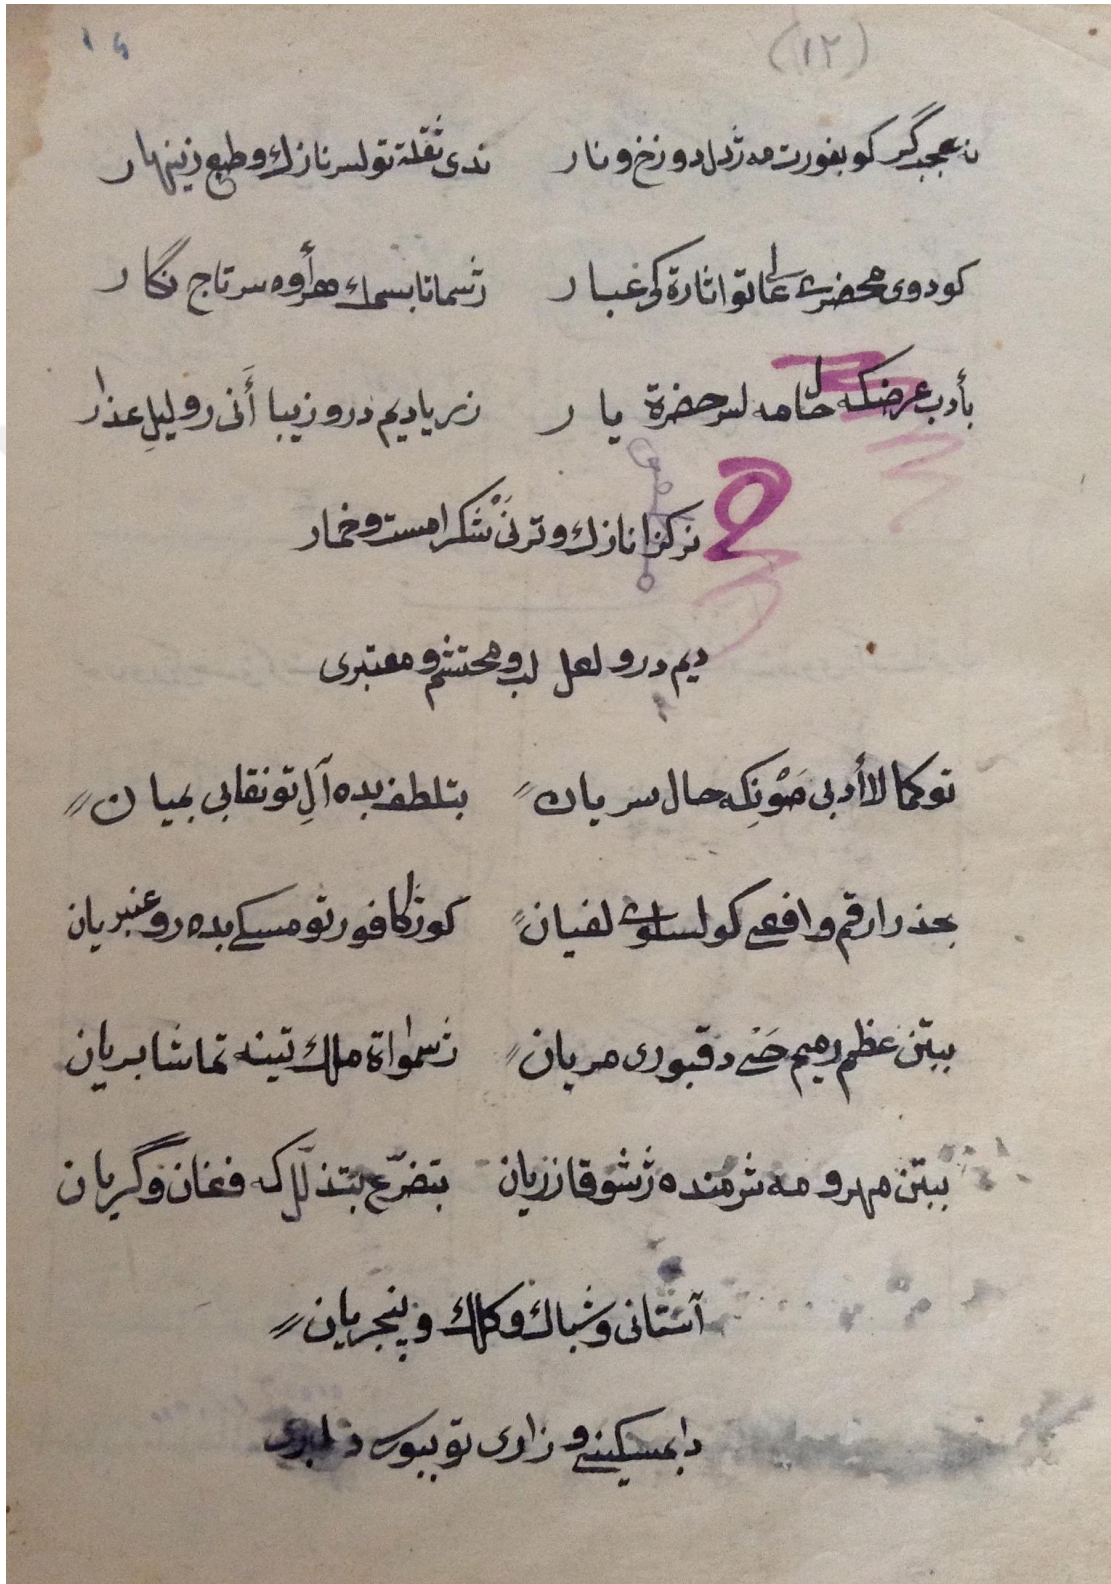 (١٢)
نه عجب گر کو بفورت مه ژدل دوزخ و نار ندی ثقلة تو لسر نازك و طبع زینهار
کو دوی محضرت عالی تو اثارة کی غبار ژسما تا بسمك هر أوه سرتاج نگار
بأدب عرضکه حنامه لسر حضرة یار زر یا دیم در و زیبا أنی رو لیل عذار
نرکزا نازك و ترنی شکرا مست و خمار
دیم در و لعل لب و محتشم و معتبری
تو کمالا أدبی صونکه حال سریان بتلطف بده آل تو نقابی بمیان
بحذر ارقم و افعی کو لسلوی لفیان کو ژکافور تو مسکی بده رو عنبریان
ببتن عظم رمیم حی د قبوری مریان ژسمواة ملك تینه تماشا بریان
ببتن مهر و مه شرمنده ژشوقا زریان بتضرّع بتذلّل که فغان و گریان
آستانی و شباك و كلك و پنجریان
دا بمسکینی و زاری تو ببوی دلبری